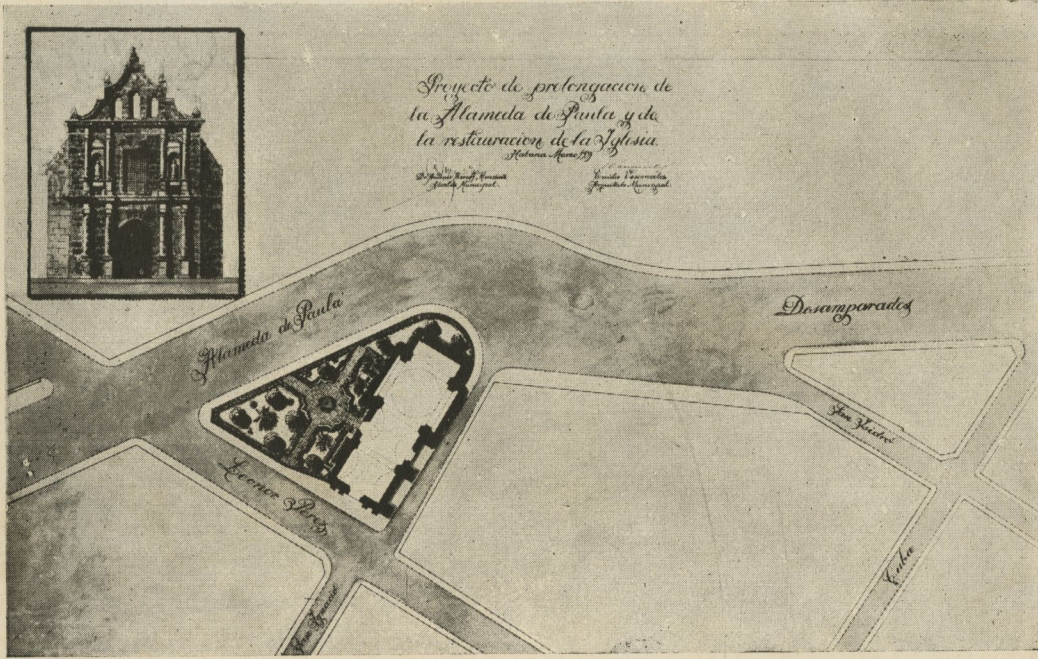 Proyecto de prolongacion de
la Alameda de Paula y de
la restauracion de la Yglesia.
Habana Marzo
Alcalde Municipal.
Emilio Vasconcelos
Arquitecto Municipal.
Alameda de Paula
Desamparados
Leonor Perez
San Ysidro
Cuba
San Ygnacio